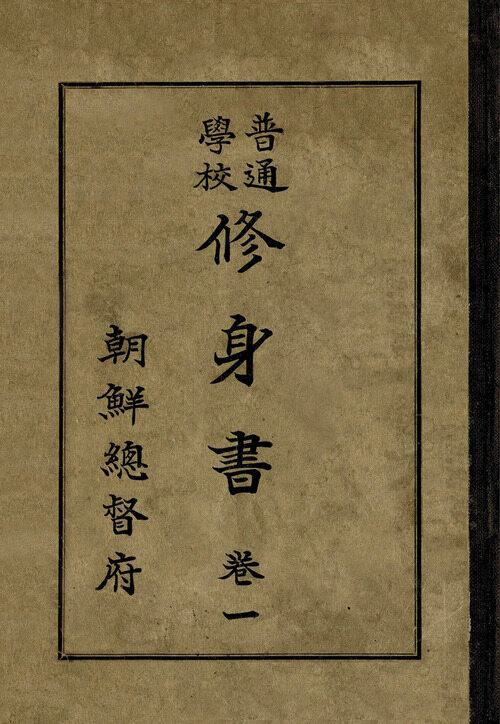 普通
學校
修身書 卷一
朝鮮總督府